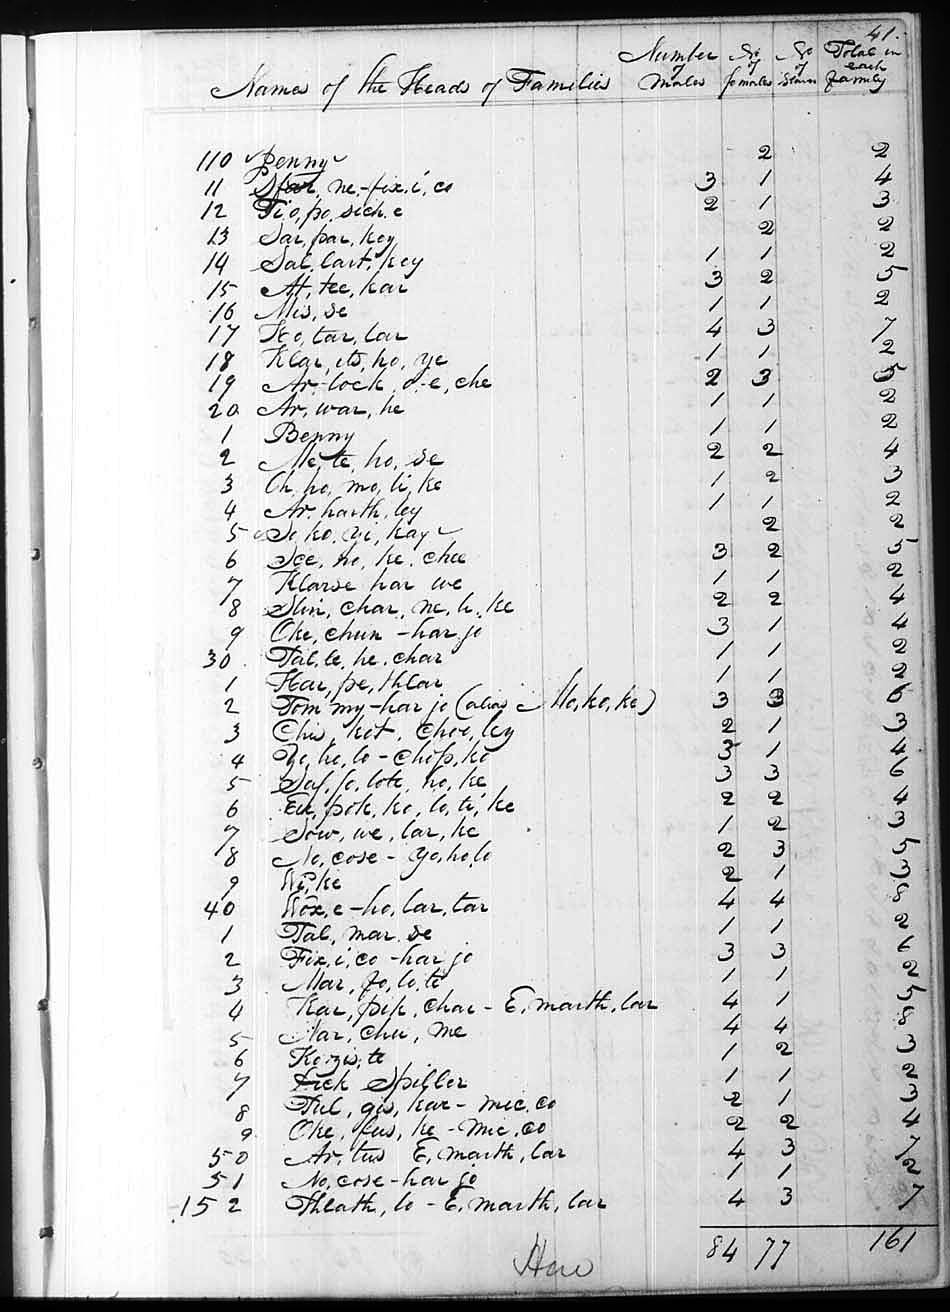 41.
Names of the Heads of Families Number of Males No of females No of Slaves Total in each family
110 Benny 2 2
11 ne-fix,i,co 3 1 4
12 Ti,o,po,sich,e 2 1 3
13 Sar,par,key 2 2
14 Sal,lart,key 1 1 2
15 At,tee,kar 3 2 5
16 Mis,se 1 1 2
17 Ko,tar,lar 4 3 7
18 Klar,its,ho,ye 1 1 2
19 Ar-lock,o-e,che 2 3 5
20 Ar,war,he 1 1 2
1 Benny 1 1 2
2 Me,te,ho,se 2 2 4
3 Oh,po,mo,li,ke 1 2 3
4 Ar,harth,ley 1 1 2
5 So,ko,yi,kay 2 2
6 See,ho,ke,chee 3 2 5
7 Klarse har we 1 1 2
8 Slin,char,ne,h,ke 2 2 4
9 Oke,chun-har jo 3 1 4
30 Tal,le,he,char 1 1 2
1 Har,pe,thlar 1 1 2
2 Tom my-har jo (alias Mo,ko,ke) 3 3 6
3 Chis,kot,choo,ley 2 1 3
4 Yo,ho,lo-chop,ko 3 1 4
5 Saf,fo,lote,ho,ke 3 3 6
6 pok,ko,lo,ti,ke 2 2 4
7 Sow,we,lar,ke 1 2 3
8 No,cose-Yo,ho,lo 2 3 5
9 Wi,ke 2 1 3
40 Wox,e-ho,lar,tar 4 4 8
1 Tal,mar,se 1 1 2
2 Fix,i,co-har jo 3 3
3 Mar,fo,lo,ti 1 1 2
4 Kar,pip,char-E,marth,lar 4 1 5
5 Nar,chu,me 4 4 8
6 te 1 2 3
7 Dick Spiller 1 1 2
8 Tul,gis,kar-mic,co 2 1 3
9 Oke,fus,ke-mic,co 2 2 4
50 Ar,tus E,marth,lar 4 3 7
51 No,cose-har jo 1 1 2
152 Thlath,lo-E,marth,lar 4 3 7
84 77 161